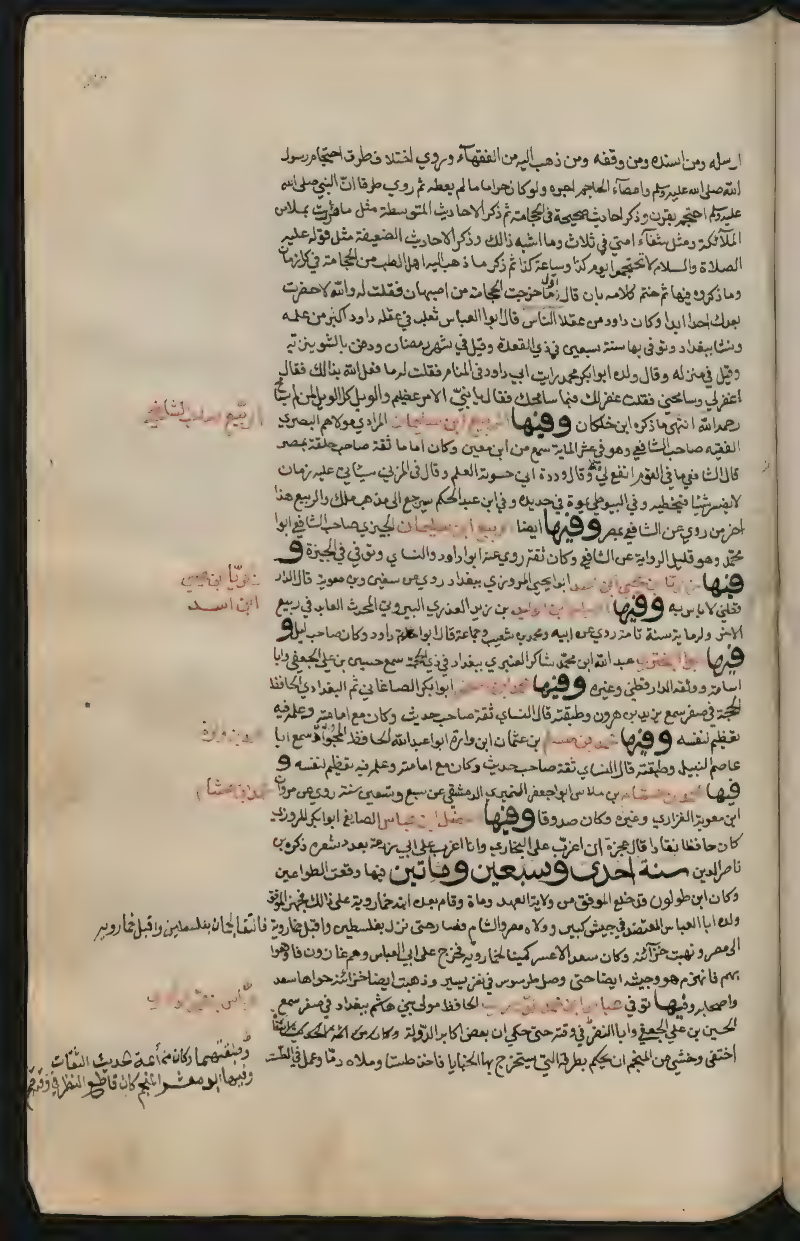 ارسله ومن اسنده ومن وقفه ومن ذهب اليه من الفقهآء وروي اختلاف طرق احتجام رسول
الله صلى الله عليه وسلم واعطآء الحاجم اجره ولو كان حراما ما لم يعطه ثم روي طرقا ان النبي صلى الله
عليه وسلم احتجم بقرن وذكر احاديث صحيحة في الحجامة ثم ذكر الاحاديث المتوسطة مثل ما مررت بملاء من
الملآئكة ومثل شفآء امتي في ثلاث وما اشبه ذالك وذكر الاحاديث الضعيفة مثل قوله عليه
الصلاة والسلام لا تحتجموا يوم كذا وساعة كذا ثم ذكر ما ذهب اليه اهل الطب من الحجامة في كل زمان
وما ذكروه فيها ثم ختم كلامه بان قال اول ما خرجت الحجامة من اصبهان فقلت له والله لا حضرت
بعدك احدا ابدا وكان داود من عقلا الناس قال ابوا العباس ثعلب في عقله داود اكثر من علمه
ونشا ببغداد وتوفى بها سنة سبعين في ذي القعدة وقيل في شهر رمضان ودفن بالشونيزيه
وقيل في منزله وقال ولده ابوا بكر محمد رايت ابي داود في المنام فقلت له ما فعل الله بك قال
غفر لي وسامحني فقلت غفر لك فبما سامحك فقال يا بني الامر عظيم والويل كل الويل لمن لم يسامح
رحمه الله انتهى ما ذكره ابن خلكان وفيها الربيع ابن سليمان المرادي مولاهم البصري
الفقيه صاحب الشافعي وهو في عشر الماية سمع من ابن معين وكان اماما ثقة صاحب حلقة بمصر
قال الشافعي ما في القوم انفع لي منه وقال وددت اني حسوته العلم وقال في المزني سياتي عليه زمان
لا يفسر شيئا فيخطيه وفي البويطي يموت في حديده وفي ابن عبد الحكم سيرجع الى مذهب ملك والربيع هذا
اخر من روي عن الشافعي بمصر وفيها ايضا ربيع ابن سليمان الجيزي صاحب الشافعي ابوا
محمد وهو قليل الرواية عن الشافعي وكان ثقة روي عنه ابوا داود والنساي وتوفى في الجيزة و
فيها زكريا بن يحيى ابن اسد ابوا يحيى المروزي ببغداد روي عن سفين وبن معوية قال الدار
قطني لا باس به وفيها العباس بن الوليد بن مزيد العذري البيروتي المحدث العابد في ربيع
الاخر وله ماية سنة تامة روي عن ابيه ومحمد بن شعيب وجماعة قال ابوا داود وكان صاحب ليل و
فيها ابوا البختري عبد الله ابن محمد شاكر العنبري ببغداد في ذي الحجة سمع حسين بن علي الجعفي وابا
اسامة ووثقه الدارقطني وغيره وفيها محمد بن اسحق ابوا بكر الصاغاني ثم البغدادي الحافظ
الحجة في صفر سمع يزيد بن هرون وطبقته قال النساي ثقة صاحب حديث وكان مع امامته وعلمه فيه
تعظيم لنفسه وفيها محمد بن مسلم بن عثمان ابن وارة ابوا عبد الله الحافظ المجود سمع ابا
عاصم النبيل وطبقته قال النساي ثقة صاحب حديث وكان مع امامته وعلمه فيه تعظيم لنفسه و
فيها محمد بن هشام بن ملاس ابوا جعفر النميري الدمشقي عن سبع وتسعين سنة روي عن مروان
ابن معوية الفزاري وغيره وكان صدوقا وفيها الفضل ابن عباس الصايغ ابوا بكر المروزي
كان حافظا نقادا قال عجزت ان اعزب على البخاري وانا اغرب على ابي زرعة بعدد شعره ذكره بن
ناصر الدين سنة احدى وسبعين وماتين فيها وقعة الطواحين
وكان ابن طولون قد خلع الموفق من ولاية العهد ومات وقام بعده ابنه خمارويه على ذالك فجهز الموفق
ولده ابا العباس المعتضد في جيش كبير وولاه مصر والشام فصار حتى نزل بفلسطين واقبل خمارويه فالتقا الجمان بفلسطين واقبل خمارويه
الى مصر ونهبت خزآئنه وكان سعد الاعسر كمينا لخمارويه فخرج على ابي العباس وهم غارون فاوقعوا
بهم فانهزم هو وجيشه ايضا حتى وصل طرسوس في نفر يسير وذهبت ايضا خزائنه حواها سعد
واصحابه وفيها توفي عباس ابن محمد الدوري الحافظ مولى بني هاشم ببغداد في صفر سمع
الحسين بن علي الجعفي وابا النضر في وقته حتى حكي ان بعض اكابر الدولة
اختفى وخشي من المنجم ان يحكم بطرقه التي يستخرج بها الخبايا فاخذ طستا وملاه دما وعمل في الطست
الربيع صاحب الشافعي
زكريا بن يحيى
ابن اسد
محمد بن وارة
محمد بن هشام
عباس بن محمد الدوري
وطبقتهما وكان من ائمة حديث الثقات
وفيها ابو معشر المنجم كان قاطع النظر في وقته